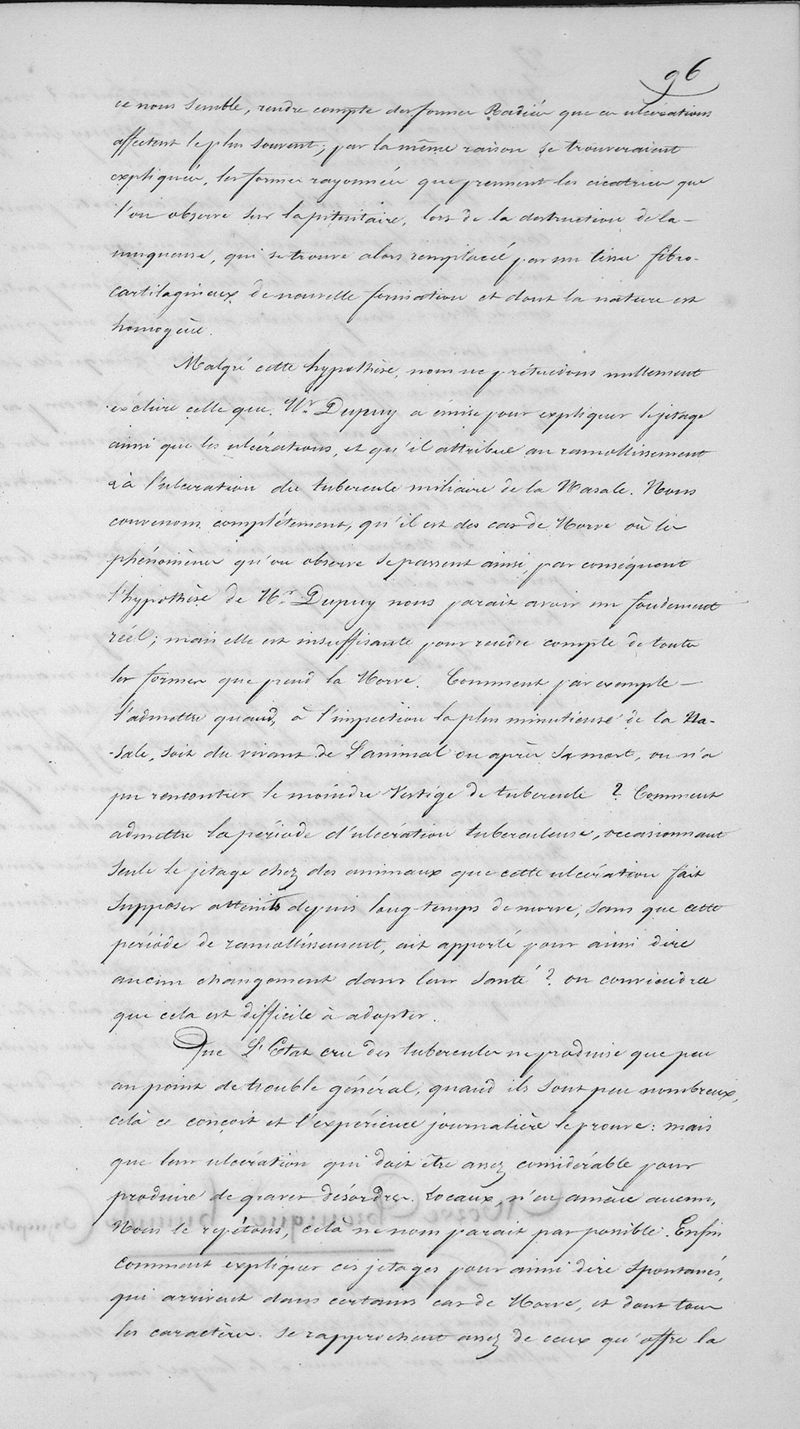 96
ce nous semble, rendre compte des formes Radiées que ces ulcérations
affectent le plus souvent; par la même raison se trouveraient
expliquées, les formes rayonnées que prennent les cicatrices que
l'on observe sur la pituitaire, lors de la destruction de la
muqueuse, qui se trouve alors remplacée par un tissu fibro-
cartilagineux de nouvelle formation et dont la nature est
homogène.
Malgré cette hypothèse, nous ne prétendons nullement
exclure celle que Mr. Dupuy a émise pour expliquer le jetage
ainsi que les ulcérations, et qu'il attribue au ramollissement
& à l'ulcération du tubercule miliaire de la Nasale. Nous
convenons complétement, qu'il est des cas de Morve où les
phénomènes qu'on observe se passent ainsi, par conséquent
l'hypothèse de Mr. Dupuy nous parait avoir un fondement
réel; mais elle est insuffisante pour rendre compte de toutes
les formes que prend la Morve. Comment par exemple
l'admettre quand, à l'inspection la plus minutieuse de la Na-
-sale, soit du vivant de L'animal ou après sa mort, on n'a
pu rencontrer le moindre Vestige de tubercule ? Comment
admettre la période d'ulcération tuberculeuse, occasionnant
seule le jetage chez des animaux que cette ulcération fait
supposer atteints depuis long-temps de morve, sans que cette
période de ramollissement, ait apporté pour ainsi dire
aucun changement dans leur santé ? on conviendra
que cela est difficile à adopter.
Que L'Etat cru des tubercules ne produise que peu
au point de trouble général, quand ils sont peu nombreux,
celà ce conçoit et l'expérience journalière le prouve: mais
que leur ulcération qui doit être assez considérable pour
produire de graves désordres Locaux, n'en amène aucun,
Nous le repétons, celà ne nous parait pas possible. Enfin
comment expliquer ces jetages pour ainsi dire spontanés,
qui arrivent dans certains cas de Morve, et dont tous
les caractères se rapprochent assez de ceux qu'offre la